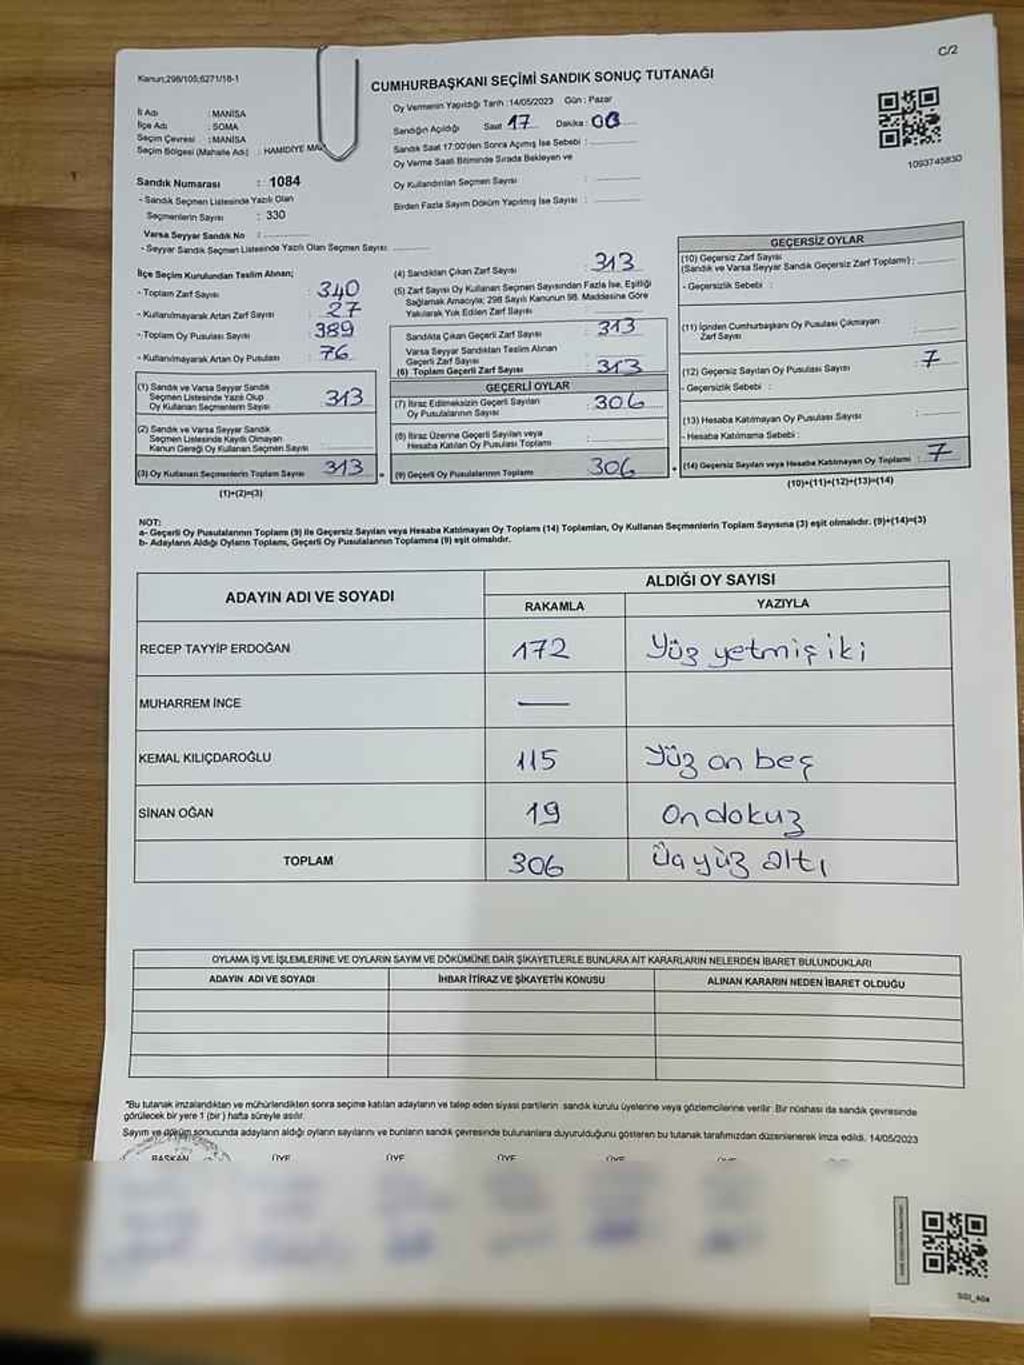 C/2
Kanun;298/105;6271/18-1
CUMHURBAŞKANI SEÇİMİ SANDIK SONUÇ TUTANAĞI
İl Adı : MANİSA
İlçe Adı : SOMA
Seçim Çevresi : MANİSA
Seçim Bölgesi (Mahalle Adı) : HAMİDİYE MA
Sandık Numarası : 1084
- Sandık Seçmen Listesinde Yazılı Olan
Seçmenlerin Sayısı : 330
Varsa Seyyar Sandık No :
- Seyyar Sandık Seçmen Listesinde Yazılı Olan Seçmen Sayısı:
Oy Vermenin Yapıldığı Tarih :14/05/2023 Gün : Pazar
Sandığın Açıldığı Saat 17 Dakika : 00
Sandık Saat 17:00'den Sonra Açmış İse Sebebi :
Oy Verme Saati Bitiminde Sırada Bekleyen ve
Oy Kullandırılan Seçmen Sayısı :
Birden Fazla Sayım Döküm Yapılmış İse Sayısı :
1093745830
İlçe Seçim Kurulundan Teslim Alınan;
- Toplam Zarf Sayısı : 340
- Kullanılmayarak Artan Zarf Sayısı : 27
- Toplam Oy Pusulası Sayısı : 389
- Kullanılmayarak Artan Oy Pusulası : 76
(1) Sandık ve Varsa Seyyar Sandık
Seçmen Listesinde Yazılı Olup
Oy Kullanan Seçmenlerin Sayısı : 313
(2) Sandık ve Varsa Seyyar Sandık
Seçmen Listesinde Kayıtlı Olmayan
Kanun Gereği Oy Kullanan Seçmen Sayısı :
(3) Oy Kullanan Seçmenlerin Toplam Sayısı : 313 =
(1)+(2)=(3)
(4) Sandıktan Çıkan Zarf Sayısı : 313
(5) Zarf Sayısı Oy Kullanan Seçmen Sayısından Fazla İse, Eşitliği
Sağlamak Amacıyla; 298 Sayılı Kanunun 98. Maddesine Göre
Yakılarak Yok Edilen Zarf Sayısı :
Sandıkta Çıkan Geçerli Zarf Sayısı : 313
Varsa Seyyar Sandıktan Teslim Alınan
Geçerli Zarf Sayısı
(6) Toplam Geçerli Zarf Sayısı : 313
GEÇERLİ OYLAR
(7) İtiraz Edilmeksizin Geçerli Sayılan
Oy Pusulalarının Sayısı : 306
(8) İtiraz Üzerine Geçerli Sayılan veya
Hesaba Katılan Oy Pusulası Toplamı :
(9) Geçerli Oy Pusulalarının Toplamı : 306 +
GEÇERSİZ OYLAR
(10) Geçersiz Zarf Sayısı
(Sandık ve Varsa Seyyar Sandık Geçersiz Zarf Toplamı) :
- Geçersizlik Sebebi :
(11) İçinden Cumhurbaşkanı Oy Pusulası Çıkmayan
Zarf Sayısı :
(12) Geçersiz Sayılan Oy Pusulası Sayısı : 7
- Geçersizlik Sebebi :
(13) Hesaba Katılmayan Oy Pusulası Sayısı :
- Hesaba Katılmama Sebebi :
(14) Geçersiz Sayılan veya Hesaba Katılmayan Oy Toplamı : 7
(10)+(11)+(12)+(13)=(14)
NOT:
a- Geçerli Oy Pusulalarının Toplamı (9) ile Geçersiz Sayılan veya Hesaba Katılmayan Oy Toplamı (14) Toplamları, Oy Kullanan Seçmenlerin Toplam Sayısına (3) eşit olmalıdır. (9)+(14)=(3)
b- Adayların Aldığı Oyların Toplamı, Geçerli Oy Pusulalarının Toplamına (9) eşit olmalıdır.
ADAYIN ADI VE SOYADI ALDIĞI OY SAYISI
RAKAMLA YAZIYLA
RECEP TAYYİP ERDOĞAN 172 Yüz yetmiş iki
MUHARREM İNCE —
KEMAL KILIÇDAROĞLU 115 Yüz on beş
SİNAN OĞAN 19 On dokuz
TOPLAM 306 Üç yüz altı
OYLAMA İŞ VE İŞLEMLERİNE VE OYLARIN SAYIM VE DÖKÜMÜNE DAİR ŞİKAYETLERLE BUNLARA AİT KARARLARIN NELERDEN İBARET BULUNDUKLARI
ADAYIN ADI VE SOYADI İHBAR İTİRAZ VE ŞİKAYETİN KONUSU ALINAN KARARIN NEDEN İBARET OLDUĞU
*Bu tutanak imzalandıktan ve mühürlendikten sonra seçime katılan adayların ve talep eden siyasi partilerin sandık kurulu üyelerine veya gözlemcilerine verilir. Bir nüshası da sandık çevresinde
görülecek bir yere 1 (bir) hafta süreyle asılır.
Sayım ve döküm sonucunda adayların aldığı oyların sayılarını ve bunların sandık çevresinde bulunanlara duyurulduğunu gösteren bu tutanak tarafımızdan düzenlenerek imza edildi. 14/05/2023
BAŞKAN ÜYE ÜYE ÜYE ÜYE ÜYE